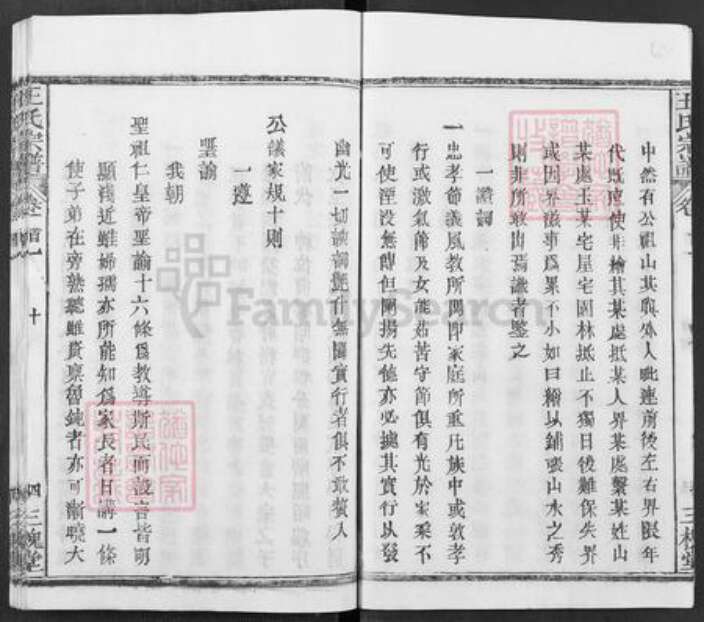 王氏宗譜
卷首
三槐堂
中然有公祖山其與外人毗連前後左右界限年
代既遠使非繪其某處抵某人界某處繫某姓山
某處王某宅屋宅園林抵止不獨日後難保失界
或因界滋事為累不小如曰繪以鋪張山水之秀
則非所敢出焉識者鑒之
一讚詞
一忠孝節義風教所關即家庭所重凡族中或敦孝
行或激氣節及女能茹苦守節俱有光於家乘不
可使湮沒無傳但闡揚先德亦必據其實行以發
幽光一切諛詞無關實行者俱不敢贅入
公議家規十則
一遵
聖諭
我朝
聖祖仁皇帝聖諭十六條為教導斯民而設言皆明
顯淺近雖婦孺亦所能知為家長者日講一條
使子弟在旁熟聽雖資稟魯鈍者亦可漸曉大
王氏宗譜
卷首
十
四
三槐堂
FamilySearch